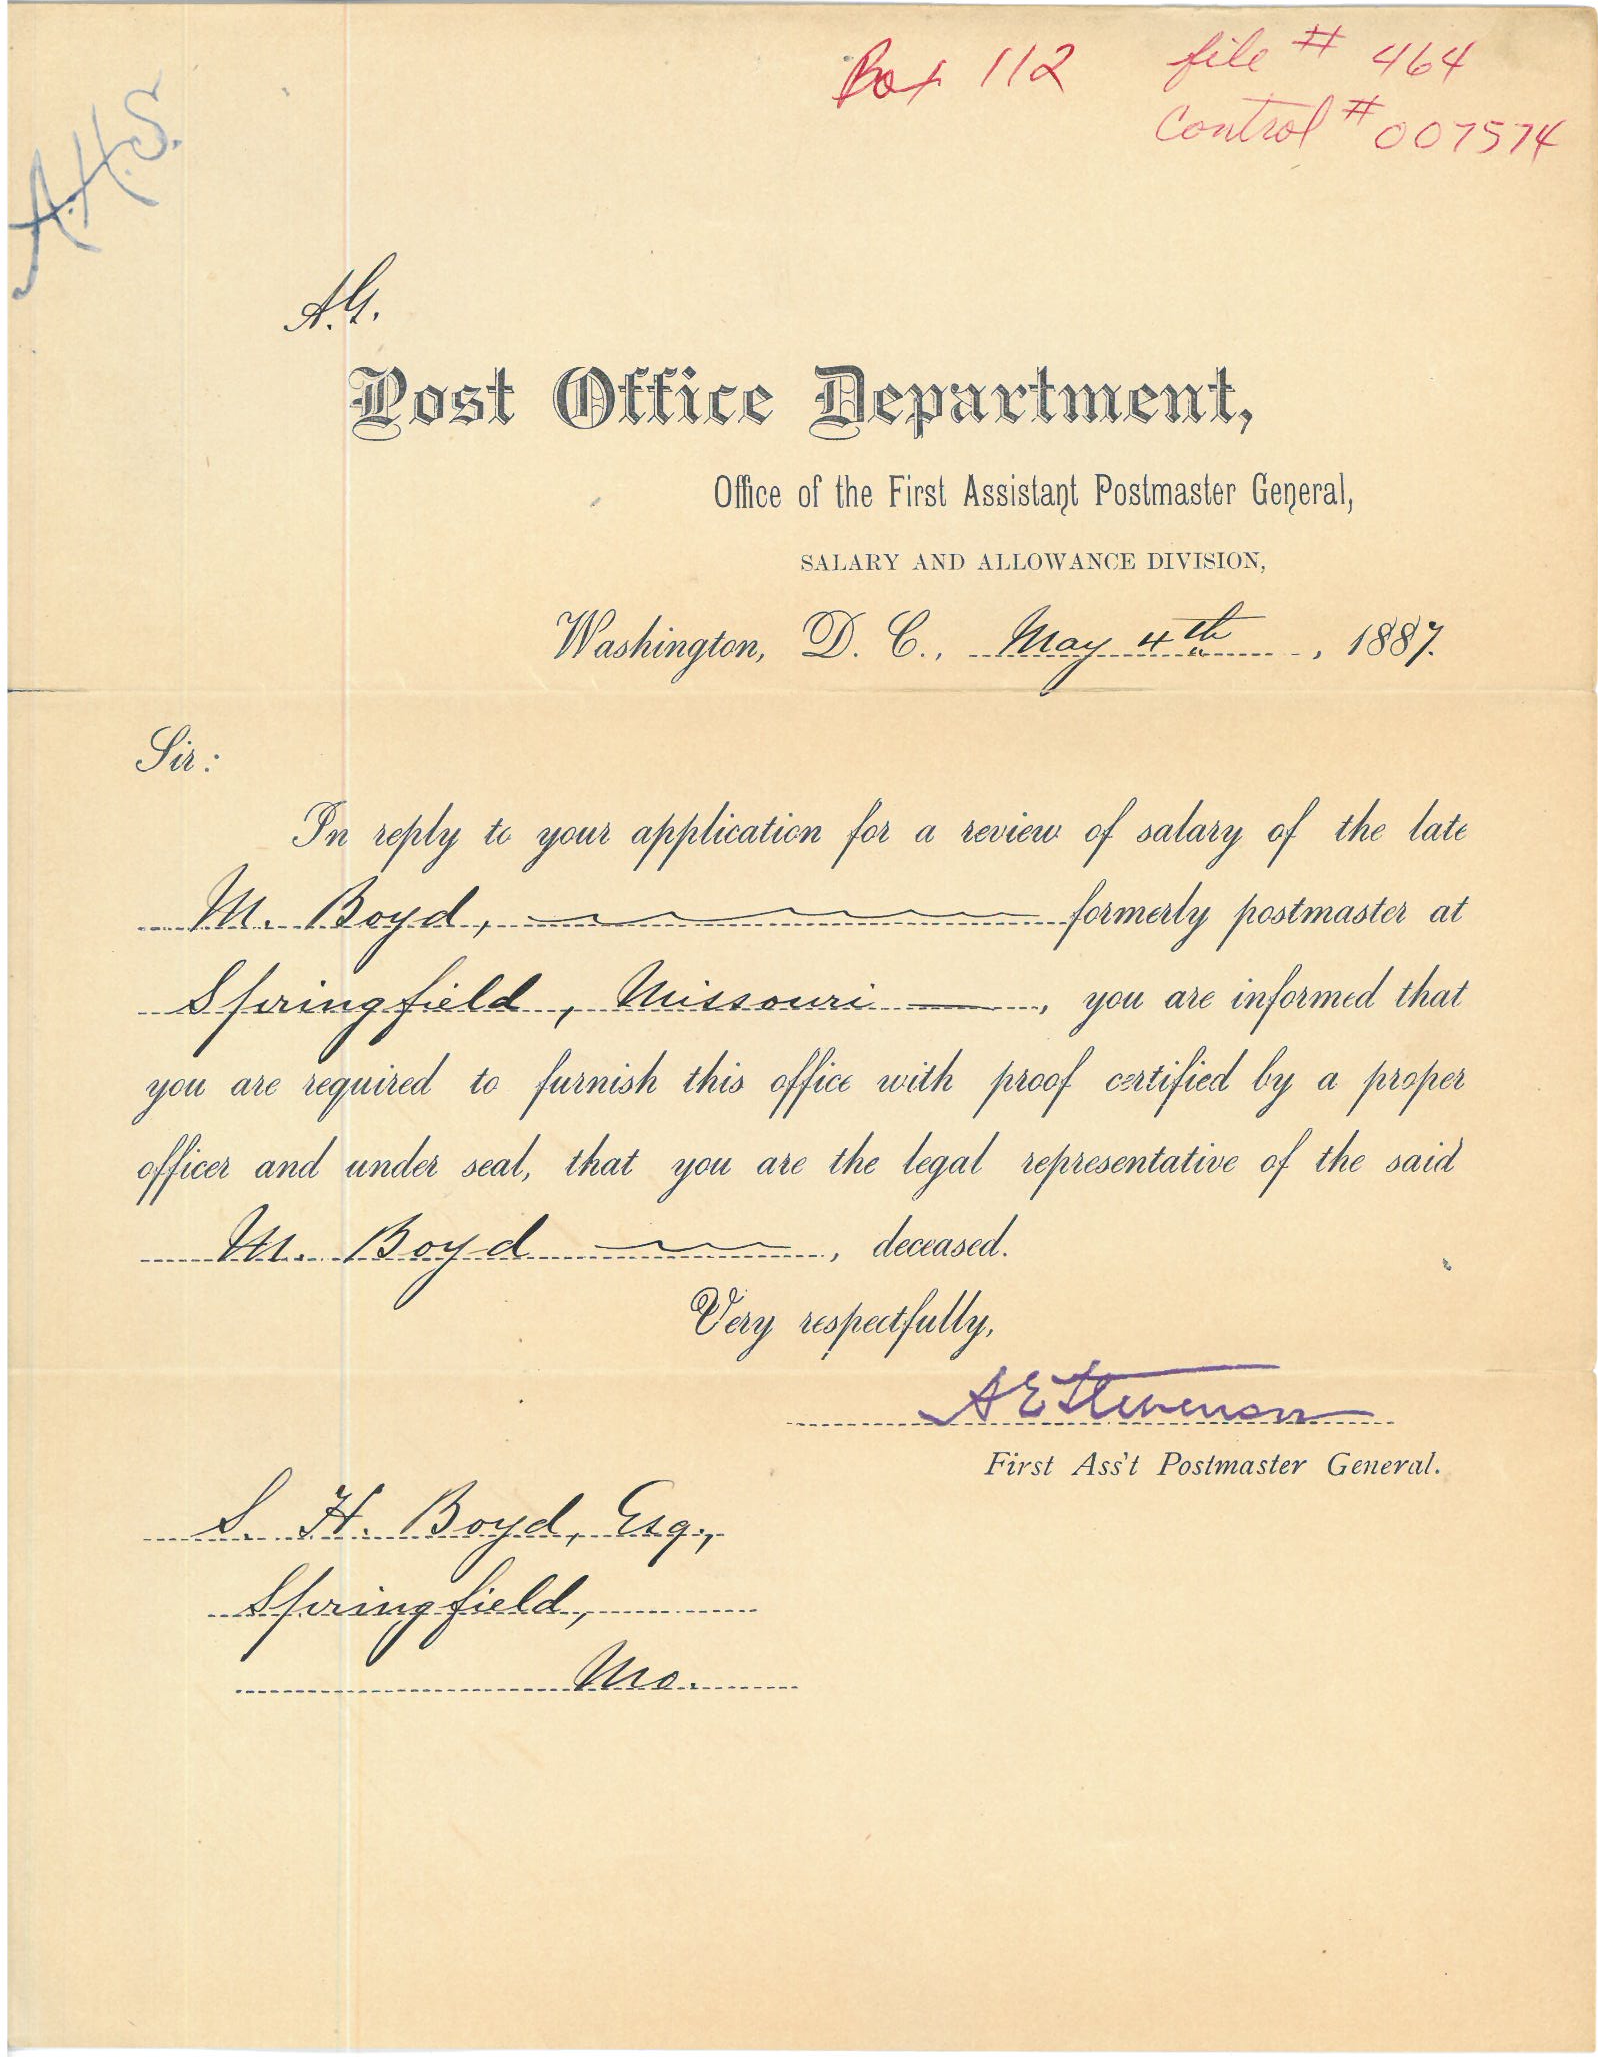 Box 112 file # 464
Control # 007574
A.H.S.
A.G.
Post Office Department,
Office of the First Assistant Postmaster General,
SALARY AND ALLOWANCE DIVISION,
Washington, D. C., May 4th, 1887.
Sir:
In reply to your application for a review of salary of the late
M. Boyd, formerly postmaster at
Springfield, Missouri, you are informed that
you are required to furnish this office with proof certified by a proper
officer and under seal, that you are the legal representative of the said
M. Boyd, deceased.
Very respectfully,
A E Stevenson
First Ass't Postmaster General.
S. H. Boyd, Esq.,
Springfield,
Mo.